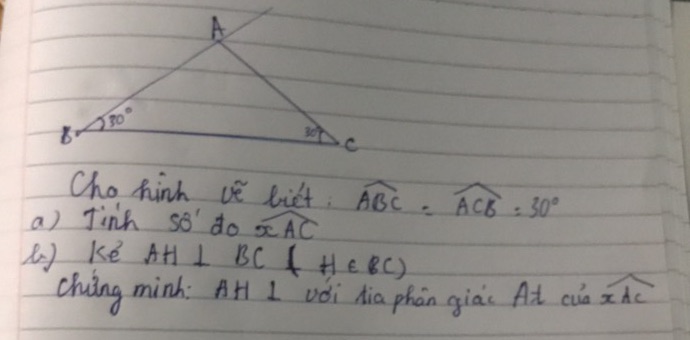 A
B 30° 30° C
Cho hình vẽ biết: ABC = ACB = 30°
a) Tính số đo xAC
b) Kẻ AH ⊥ BC ( H ∈ BC)
chứng minh: AH ⊥ với tia phân giác At của xAC